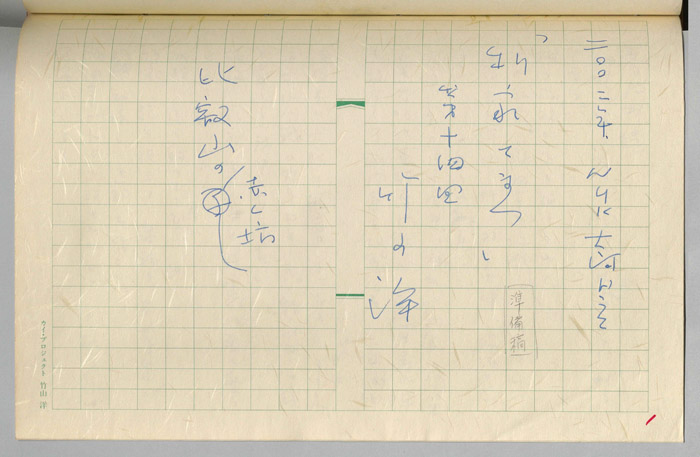 二〇〇二年 NHK大河ドラマ
「利家とまつ」
第十四回
竹山 洋
準備稿
比叡山の
赤ん坊
ウイ・プロジェクト 竹山洋